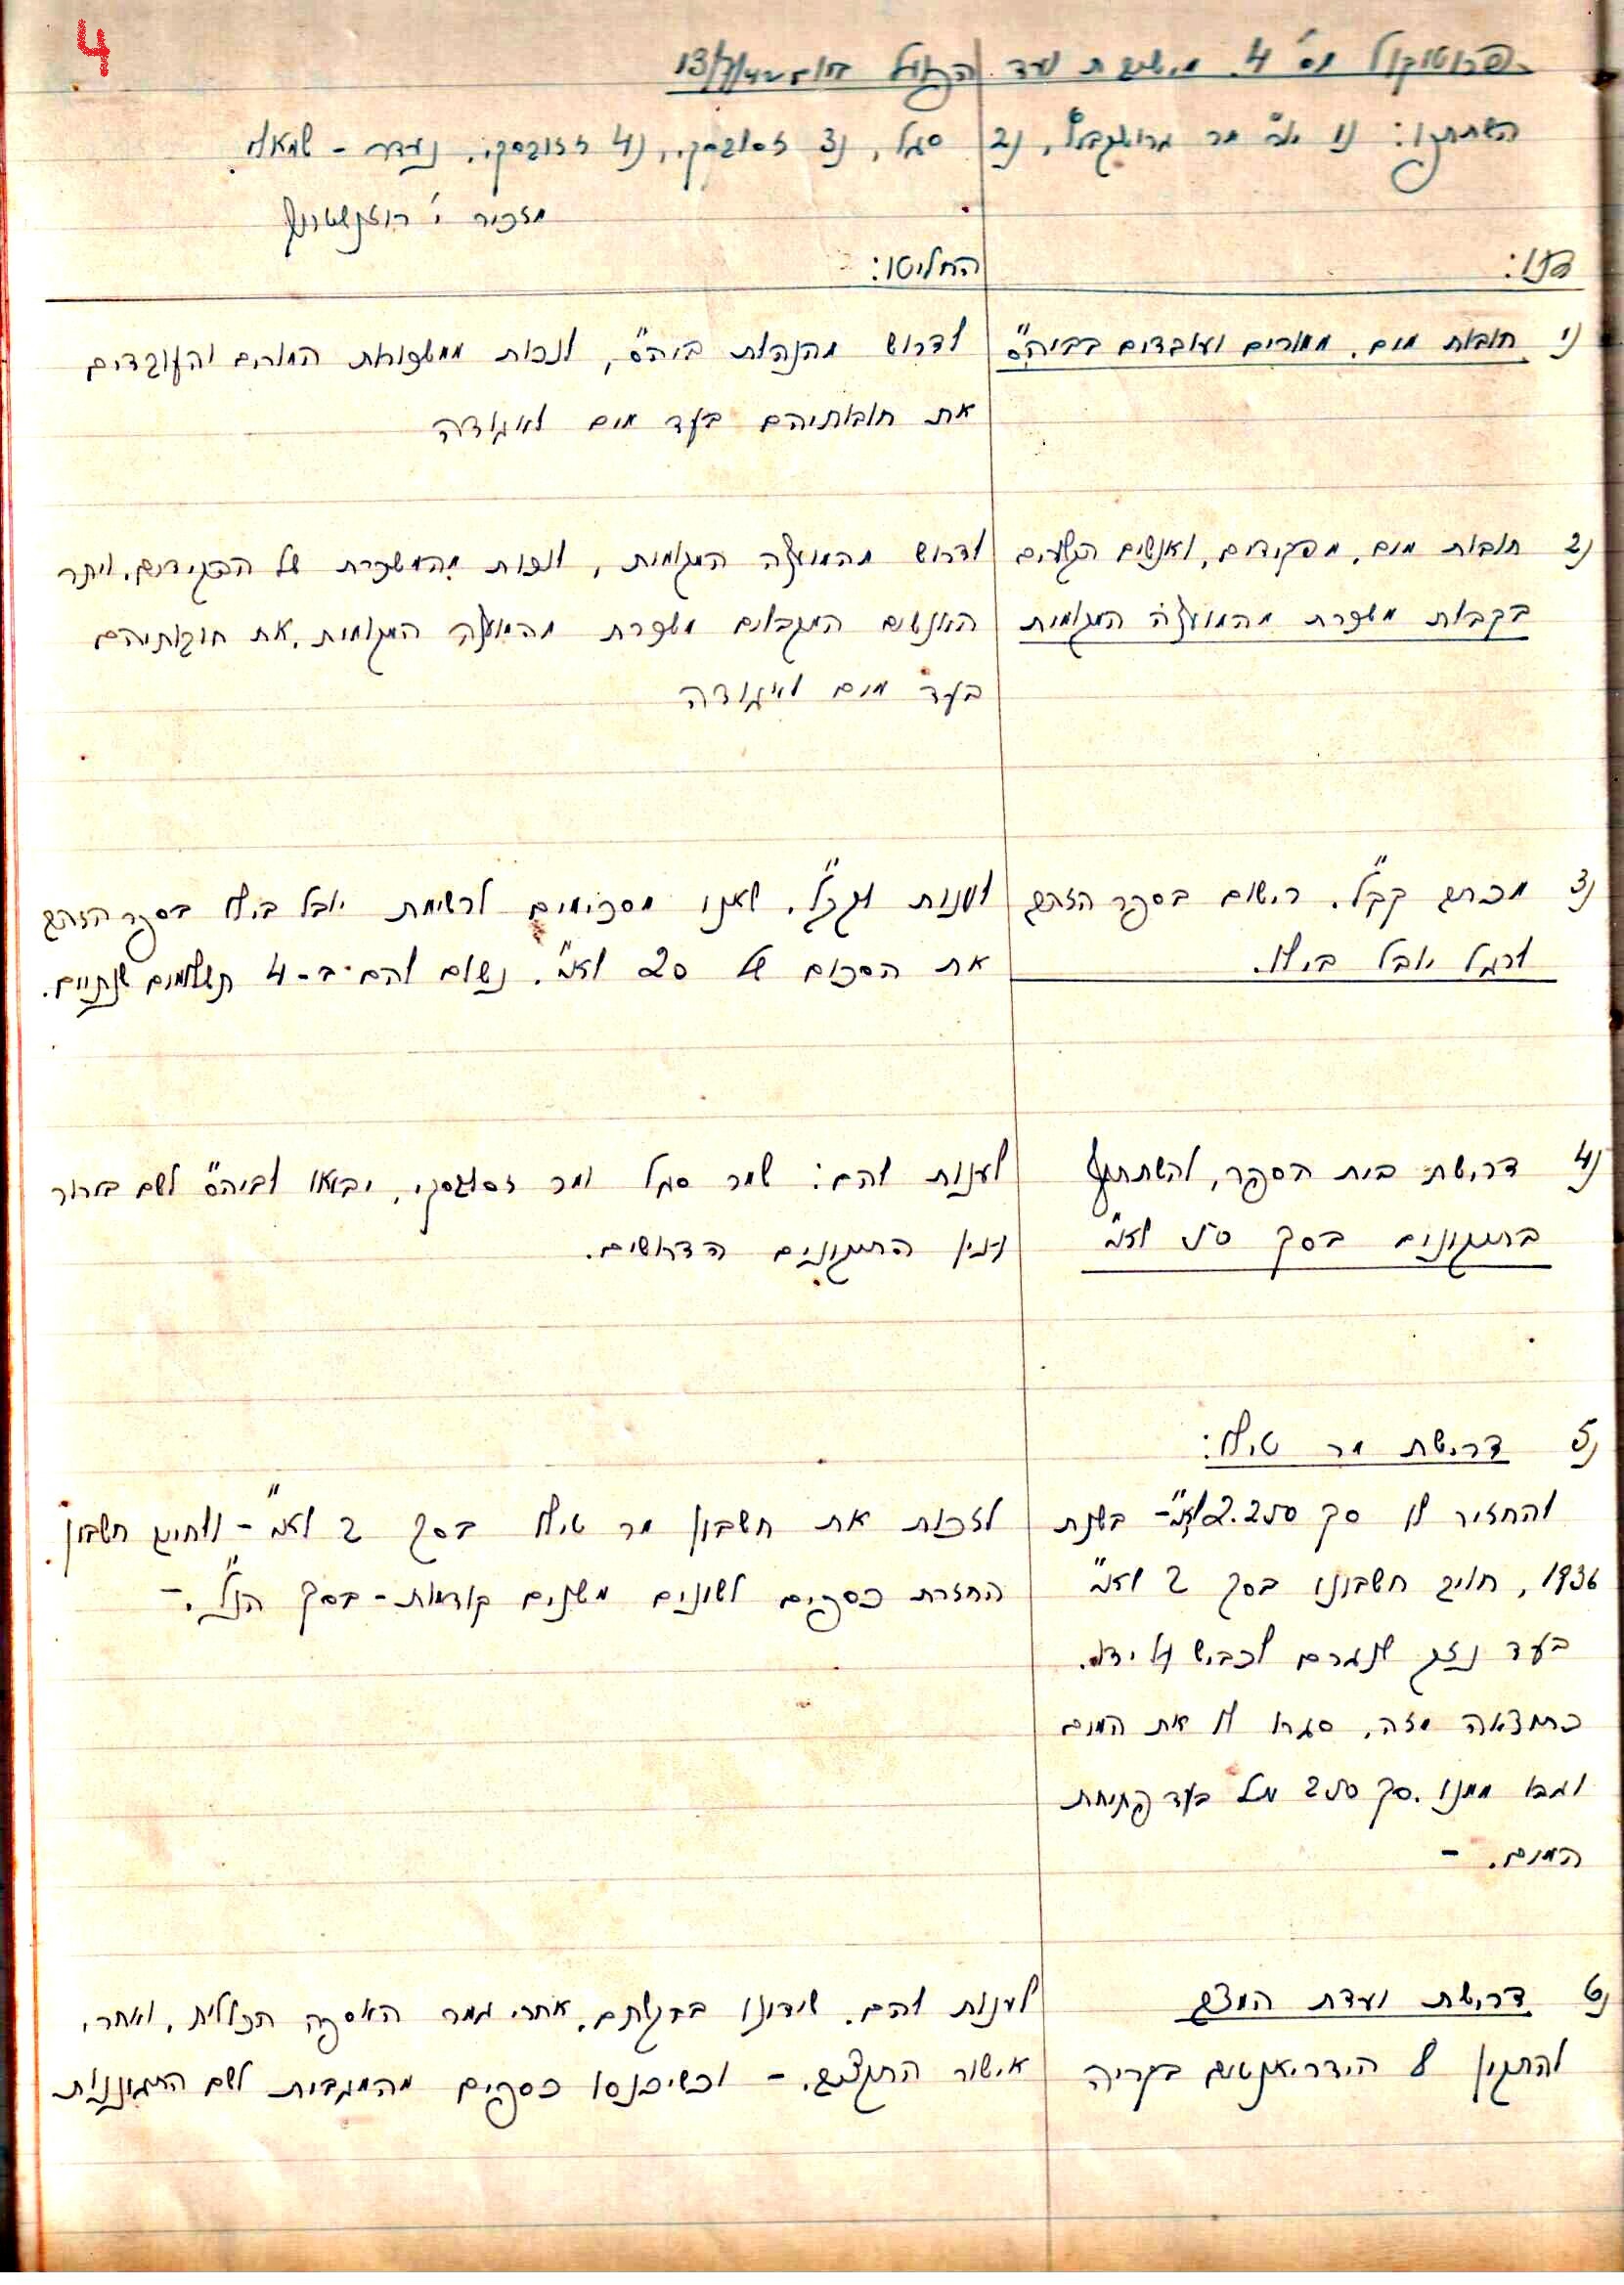 4
פרוטוקול מס' 4. מישיבת ועד הפועל מיום 13/7/42
השתתפו: 1) יו"ר מר 2) סגל, 3) זסלבסקי, 4) נעדר - שמאלי
מזכיר י' רוטנשטרייך
דנו:
החליטו:
1) חובות מים, ממורים ועובדים בביה"ס
לדרוש מהנהלת ביה"ס, לנכות ממשכורת המורים והעובדים
את חובותיהם בעד מים לאגודה
2) חובות מים, מפקידים, ואנשים הנמצאים
בקבלת משכורת מהמועצה המקומית
לדרוש מהמועצה המקומית, לנכות מהמשכורת של הפקידים, ויתר
האנשים המקבלים משכורת מהמועצה המקומית, את חובותיהם
בעד מים לאגודה
3) מכתב קק"ל. רישום בספר הזהב
לרגל יובל בילו.
לענות לקק"ל, שאנו מסכימים לרשימת יובל בילו בספר הזהב
את הסכום של 20 לא"י. נשלם להם ב-4 תשלומים שנתיים.
4) דרישת בית הספר, להשתתף
בתיקונים בסך 50 לא"י
לענות להם: שמר סגל ומר זסלבסקי, יבואו לביה"ס לשם ברור
ענין התיקונים הדרושים.
5) דרישת מר
להחזיר לו סך 2.250 לא"י- בשנת
1936, חויב חשבונו בסך 2 לא"י
בעד נזק שנגרם לכביש על ידו.
כתוצאה מזה, סגרו לו את המים
וגבו ממנו סך 250 מיל בעד פתיחת
המים. -
לזכות את חשבון מר בסך 2 לא"י - ולחייב חשבון
החזרת כספים לשונים משנים קודמות - בסך הנ"ל. -
6) דרישת ועדת המצב
להתקין 8 הידראנטים בקריה
לענות להם, שידונו בבקשתם, אחרי גמר האסיפה הכללית, ואחרי
אישור התקציב. - וכשיכנסו כספים מהמגבית לשם התגוננות